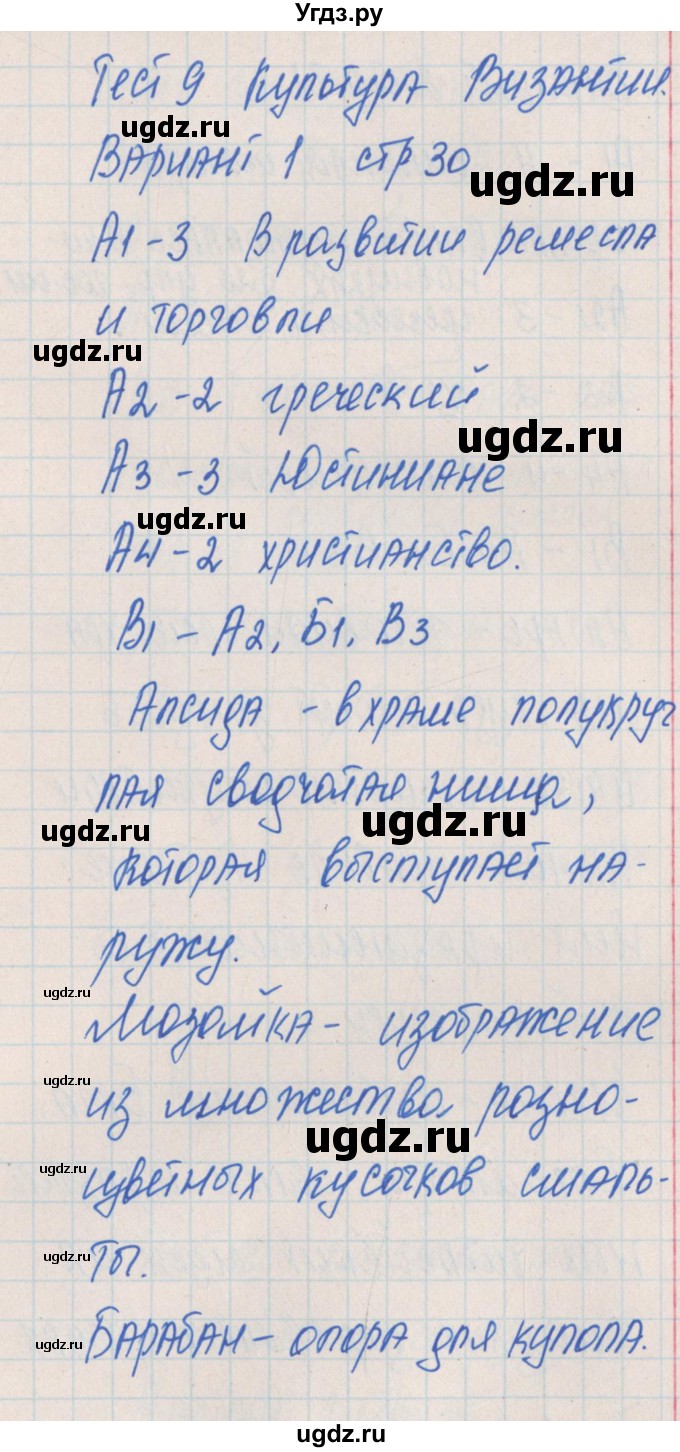 Угдз.ру
Тест 9 Культура Византии.
ugdz.ru
Вариант 1 стр 30
ugdz.ru
А1-3 В развитии ремесла
и торговли
ugdz.ru
А2-2 греческий
ugdz.ru
А3-3 Юстиниане
ugdz.ru
А4-2 христианство.
В1 - А2, Б1, В3
Апсида - в храме полукруг
лая сводчатая ниша,
ugdz.ru
ugdz.ru
которая выступает на-
ружу.
ugdz.ru
Мозайка - изображение
ugdz.ru
из множества разно-
ugdz.ru
ugdz.ru
цветных кусочков смаль-
ugdz.ru
ты.
ugdz.ru
Барабан - опора для купола.
ugdz.ru